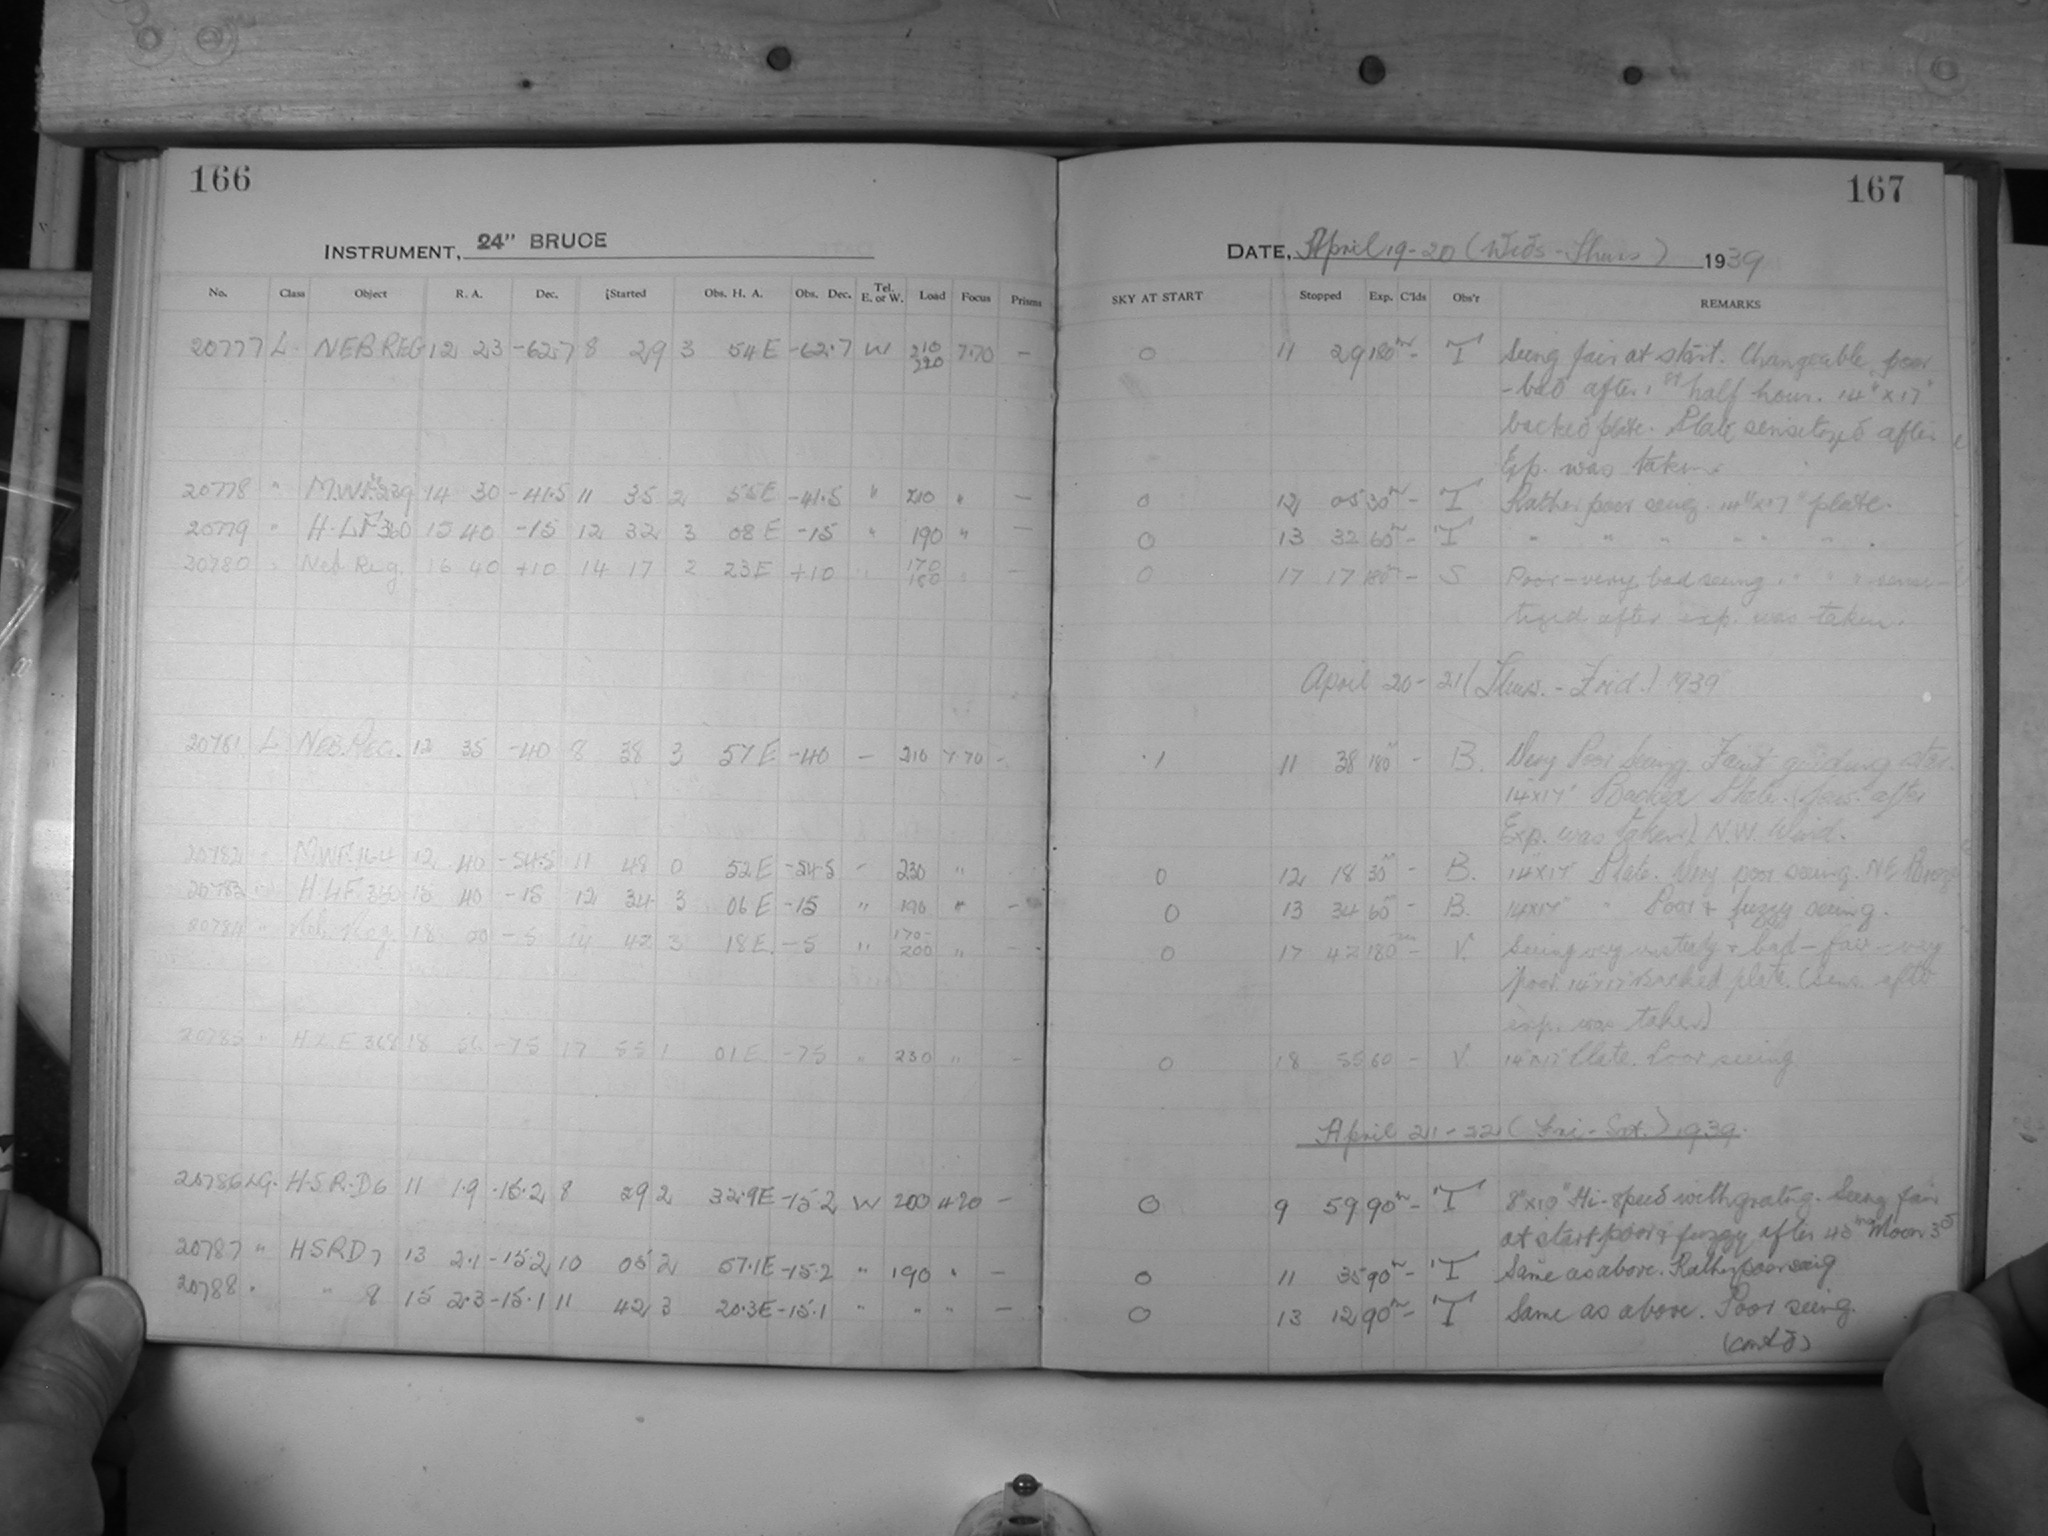 166
INSTRUMENT, 24" BRUCE
No. Class Object R. A. Dec. Started Obs. H. A. Obs. Dec. Tel. E. or W. Load Focus Prisms
20777 L NEB REG 12 23 -62.7 8 29 3 54 E -62.7 W 210 220 7.70 -
20778 " M.W.F. 239 14 30 -41.5 11 35 2 55 E -41.5 " 210 " -
20779 " H.L.F 360 15 40 -15 12 32 3 08 E -15 " 190 " -
20780 " Neb Reg. 16 40 +10 14 17 2 23 E +10 " 170 180 " -
20781 L NEB. REG. 12 35 -40 8 38 3 57 E -40 - 210 7.70 -
20782 " M.W.F. 164 12 40 -54.5 11 48 0 52 E -54.5 - 230 "
20783 " H.L.F. 360 15 40 -15 12 34 3 06 E -15 " 190 " -
20784 " Neb. Reg. 18 00 -5 14 42 3 18 E. -5 " 170- 200 " -
20785 " H.L.F 368 18 -75 17 55 1 01 E. -75 " 230 " -
20786 LG. H.S.R.D6 11 1.9 -15.2 8 29 2 32.9 E -15.2 W 200 4.20 -
20787 " HSRD7 13 2.1 -15.2 10 05 2 57.1 E -15.2 " 190 " -
20788 " " 8 15 2.3 -15.1 11 42 3 20.3 E -15.1 " " " -
167
DATE, April 19-20 (Weds-Thurs) 1939
SKY AT START Stopped Exp. C'lds Obs'r REMARKS
0 11 29 180m - T Seeing fair at start. Changeable poor
-bad after 1st half hour. 14" x 17"
backed plate. Plate sensitized after
Exp. was taken.
0 12 05 30m - T Rather poor seeing. 14" x 17" plate.
0 13 32 60m - T " " " " " " .
0 17 17 180m - S Poor-very bad seeing. " " " sensi-
tized after exp. was taken.
April 20-21 (Thurs.-Frid.) 1939
.1 11 38 180m - B. Very Poor Seeing. Faint guiding star.
14x17" Backed Plate. (Sens. after
Exp. was taken) N.W. Wind.
0 12 18 30m - B. 14x17" Plate. Very poor seeing. N.E. Breeze
0 13 34 60m - B. 14x17" " Poor & fuzzy seeing.
0 17 42 180m - V. Seeing very unsteady & bad-fair-very
poor. 14"x17" Backed plate. (Sens. after
exp. was taken)
0 18 55 60 - V. 14"x17" Plate. Poor seeing.
April 21-22 (Fri-Sat.) 1939.
0 9 59 90m - T 8"x10" Hi-speed with grating. Seeing fair
at start poor & fuzzy after 45m Moon
0 11 35 90m - T Same as above. Rather poor seeing
0 13 12 90m - T Same as above. Poor seeing.
(cont'd)